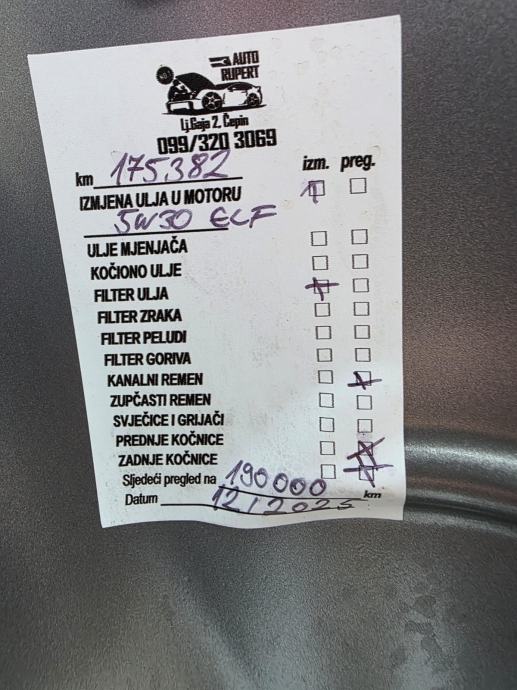 AUTO
RUPERT
Lj.Gaja 2, Čepin
099/320 3069
km 175382 izm. preg.
IZMJENA ULJA U MOTORU
5W30 ELF
ULJE MJENJAČA
KOČIONO ULJE
FILTER ULJA
FILTER ZRAKA
FILTER PELUDI
FILTER GORIVA
KANALNI REMEN
ZUPČASTI REMEN
SVJEČICE I GRIJAČI
PREDNJE KOČNICE
ZADNJE KOČNICE
Sljedeći pregled na 190000 km
Datum 12/2025